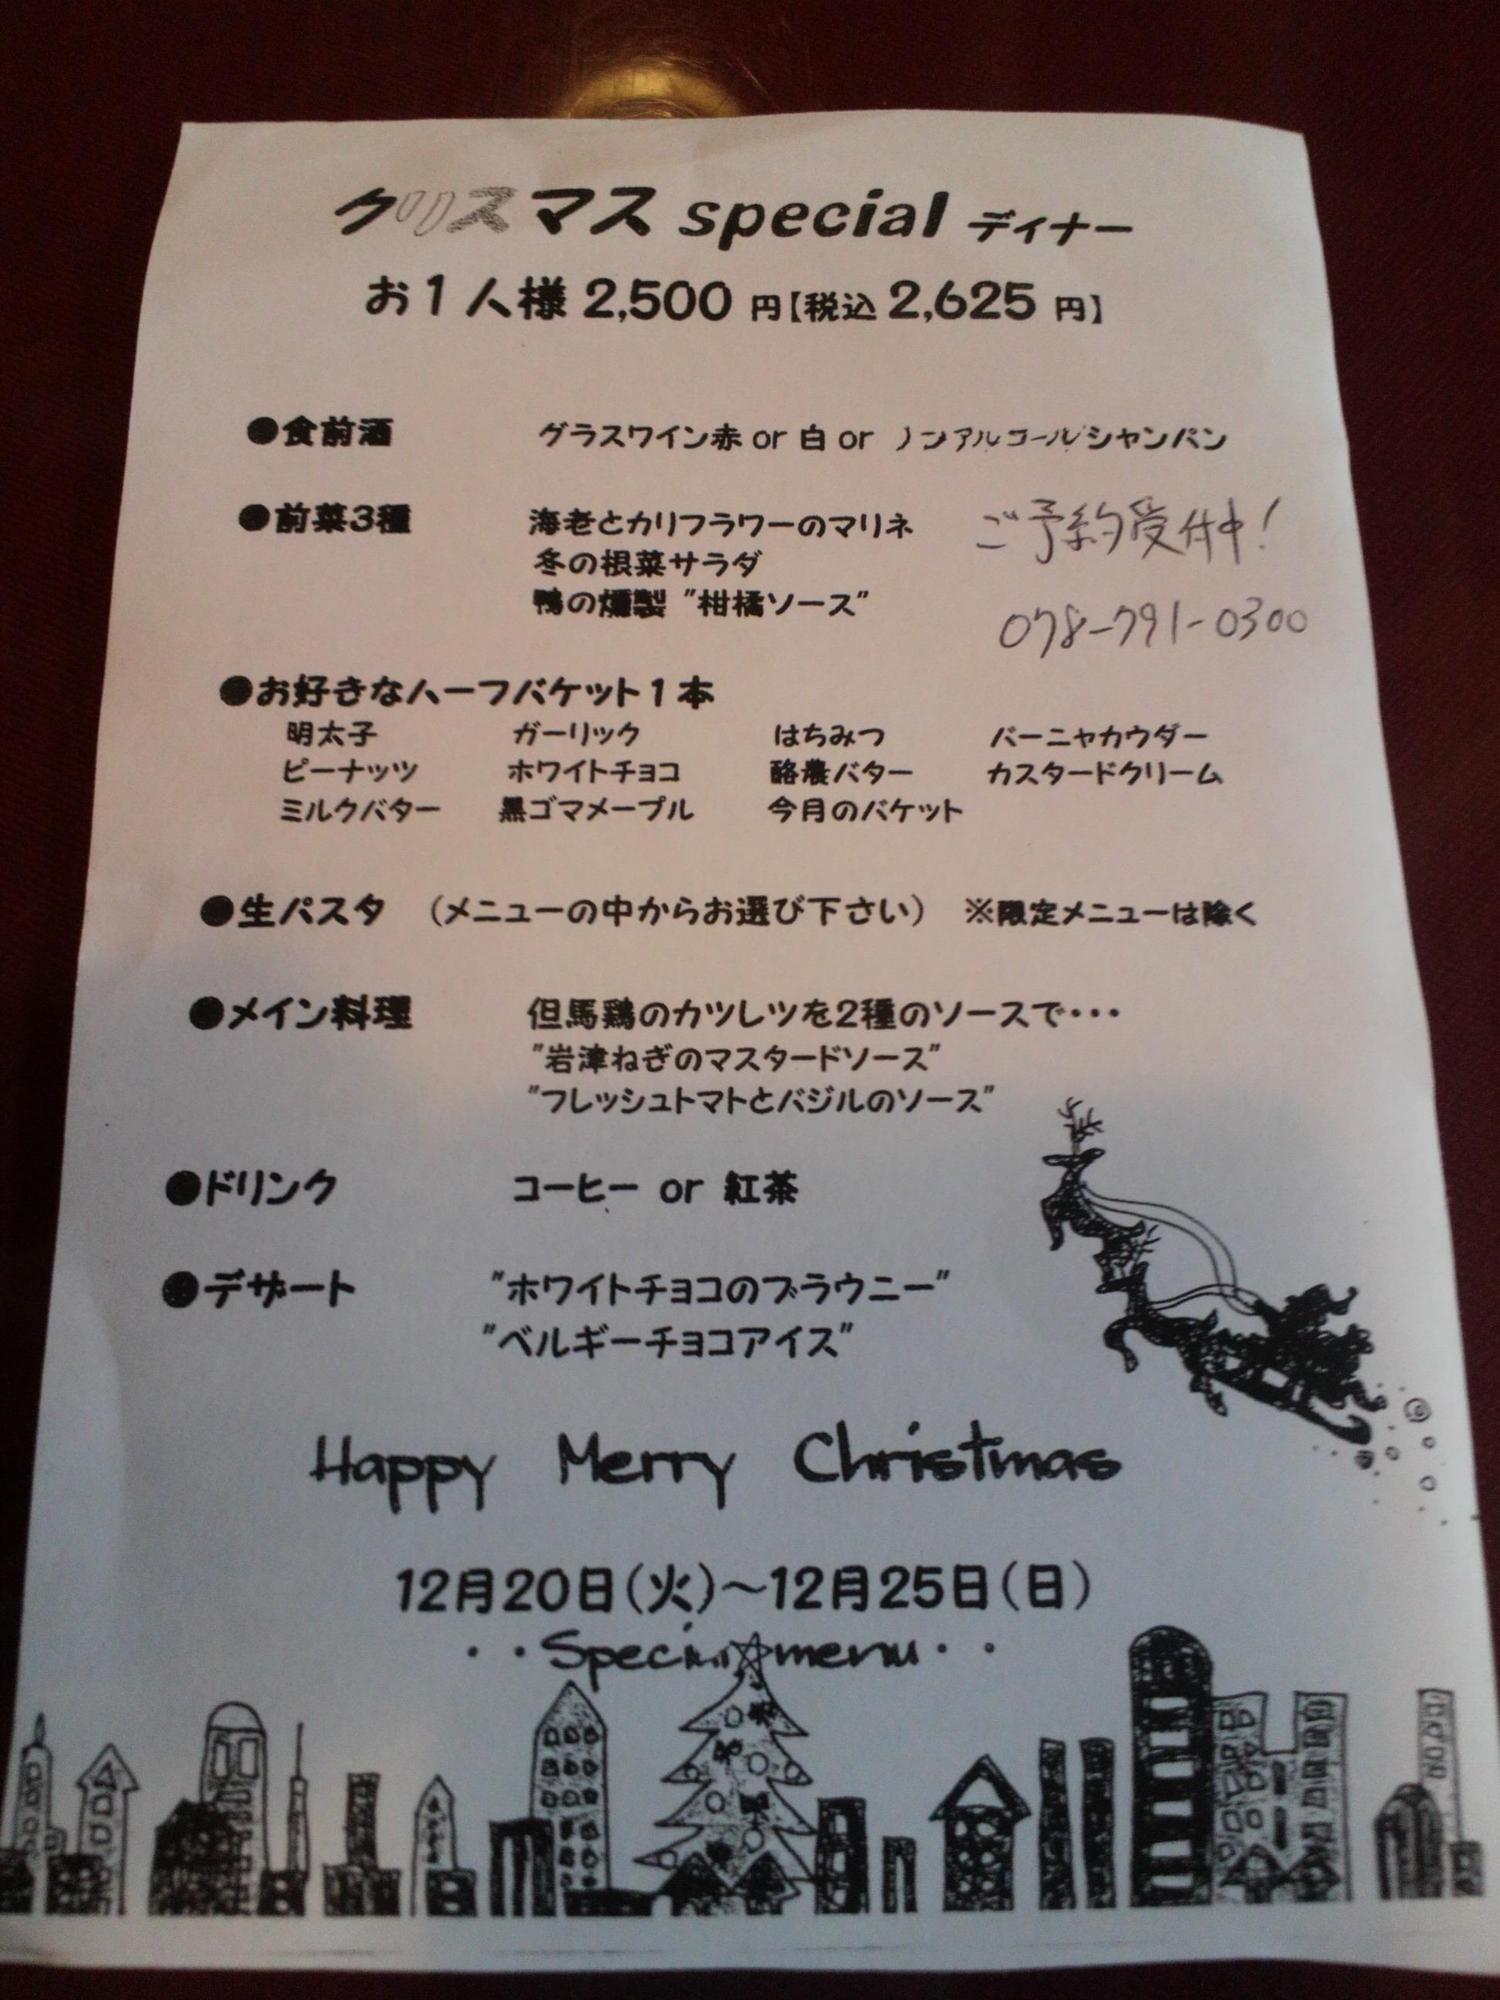 クリスマス special ディナー
お1人様 2,500 円【税込 2,625 円】
●食前酒 グラスワイン赤 or 白 or ノンアルコールシャンパン
●前菜3種 海老とカリフラワーのマリネ
冬の根菜サラダ
鴨の燻製 "柑橘ソース"
ご予約受付中!
078-791-0300
●お好きなハーフバケット1本
明太子 ガーリック はちみつ バーニャカウダー
ピーナッツ ホワイトチョコ 酪農バター カスタードクリーム
ミルクバター 黒ゴマメープル 今月のバケット
●生パスタ (メニューの中からお選び下さい) ※限定メニューは除く
●メイン料理 但馬鶏のカツレツを2種のソースで・・・
"岩津ねぎのマスタードソース"
"フレッシュトマトとバジルのソース"
●ドリンク コーヒー or 紅茶
●デザート "ホワイトチョコのブラウニー"
"ベルギーチョコアイス"
Happy Merry Christmas
12月20日(火)~12月25日(日)
・・Special☆menu・・